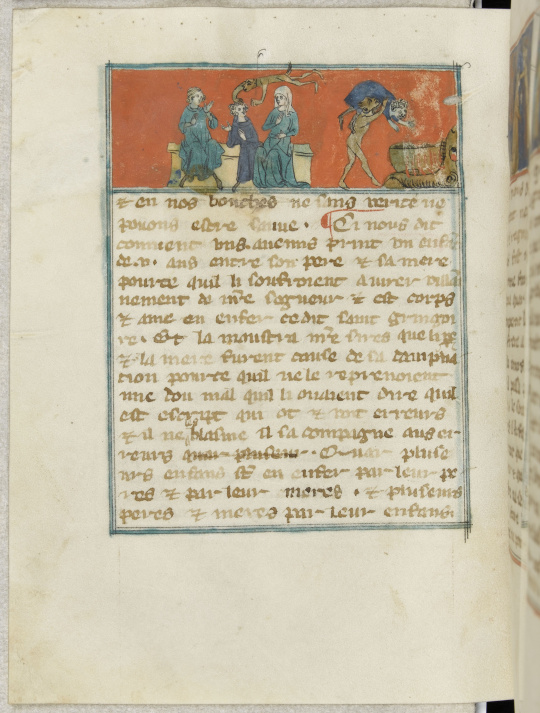 ⁊ en nos bouches ne sans verite ne
pouons estre sauue . ¶ Ci nous dit
comment uns anemis print un enfant
de .v. ans entre son pere ⁊ sa mere
pource quil li souffroient a iurer
nement de nr̃e seigneur ⁊ est corps
⁊ ame en enfer ce dit saint gringoi
re . Et la moustra nr̃e sires que li pe
⁊ la mere furent cause de sa dampna
tion pource quil ne le reprenoient
mie dou mal quil li ouaient dire quil
est escript qui ot ⁊ voit erreurs
⁊ il ne blasme il sa compaigne aus er
reurs quar pluseurs . Quar pluse
urs enfans st̃ en enfer par leur pe
res ⁊ par leur meres . ⁊ pluseurs
peres ⁊ meres par leur enfans .